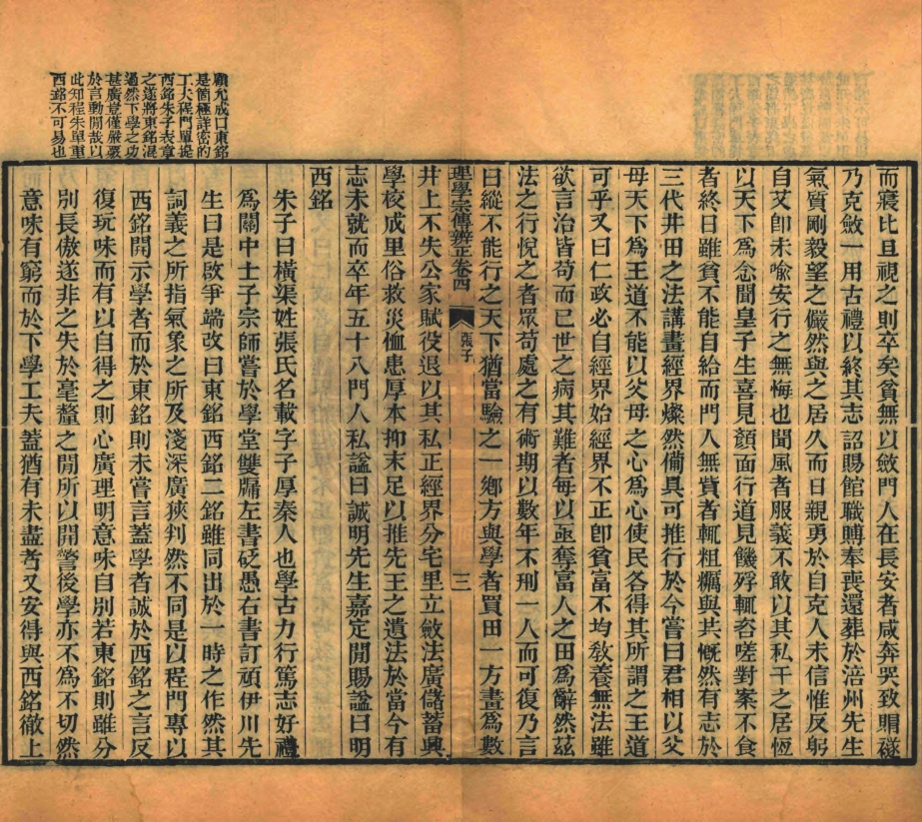 而寢比旦視之則卒矣貧無以斂門人在長安者咸奔哭致賵襚
乃克斂一用古禮以終其志詔賜館職賻奉喪還葬於涪州先生
氣質剛毅望之儼然與之居久而日親勇於自克人未信惟反躬
自艾卽未喩安行之無悔也聞風者服義不敢以其私干之居恆
以天下爲念聞皇子生喜見顏面行道見饑殍輒咨嗟對案不食
者終日雖貧不能自給而門人無貲者輒粗糲與共慨然有志於
三代井田之法講畫經界燦然備具可推行於今嘗曰君相以父
母天下爲王道不能以父母之心爲心使民各得其所謂之王道
可乎又曰仁政必自經界始經界不正卽貧富不均敎養無法雖
欲言治皆苟而已世之病其難者每以亟奪富人之田爲辭然茲
法之行悅之者眾苟處之有術期以數年不刑一人而可復乃言
曰縱不能行之天下猶當驗之一鄉方與學者買田一方畫爲數
理學宗傳辨正卷四 張子 三
井上不失公家賦役退以其私正經界分宅里立斂法廣儲蓄興
學校成里俗救災恤患厚本抑末足以推先王之遺法於當今有
志未就而卒年五十八門人私謚曰誠明先生嘉定閒賜謚曰明
西銘
朱子曰橫渠姓張氏名載字子厚秦人也學古力行篤志好禮
爲關中士子宗師嘗於學堂雙牖左書砭愚右書訂頑伊川先
生曰是啟爭端改曰東銘西銘二銘雖同出於一時之作然其
詞義之所指氣象之所及淺深廣狹判然不同是以程門專以
西銘開示學者而於東銘則未嘗言蓋學者誠於西銘之言反
復玩味而有以自得之則心廣理明意味自別若東銘則雖分
別長傲遂非之失於毫釐之閒所以開警後學亦不爲不切然
意味有窮而於下學工夫蓋猶有未盡者又安得與西銘徹上
顧允成曰東銘
是箇極詳密的
工夫程門單提
西銘朱子表章
之遂將東銘混
過然下學之功
甚廣豈僅嚴毅
於言動閒哉以
此知程朱單重
西銘不可易也